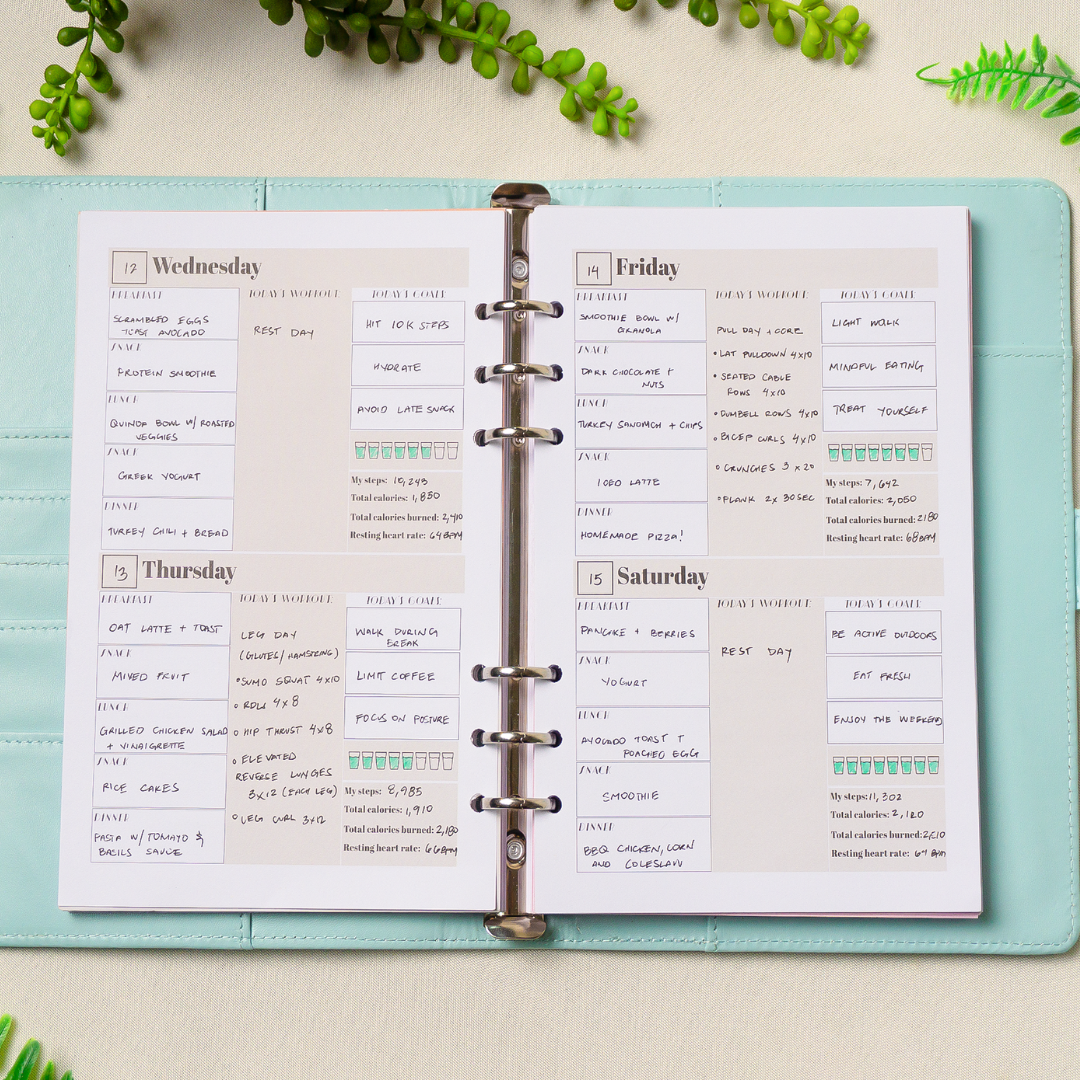 12 Wednesday
BREAKFAST
SCRAMBLED EGGS
TOAST AVOCADO
SNACK
PROTEIN SMOOTHIE
LUNCH
QUINOA BOWL W/ ROASTED
VEGGIES
SNACK
GREEK YOGURT
DINNER
TURKEY CHILI + BREAD
TODAY'S WORKOUT
REST DAY
TODAY'S GOALS
HIT 10K STEPS
HYDRATE
AVOID LATE SNACK
My steps: 10,243
Total calories: 1,850
Total calories burned: 2,410
Resting heart rate: 64BPM
13 Thursday
BREAKFAST
OAT LATTE + TOAST
SNACK
MIXED FRUIT
LUNCH
GRILLED CHICKEN SALAD
+ VINAIGRETTE
SNACK
RICE CAKES
DINNER
PASTA W/ TOMAYO &
BASILS SAUCE
TODAY'S WORKOUT
LEG DAY
(GLUTES/HAMSTRING)
• SUMO SQUAT 4x10
• RDLS 4x8
• HIP THRUST 4x8
• ELEVATED
REVERSE LUNGES
3x12 (EACH LEG)
• LEG CURL 3x12
TODAY'S GOALS
WALK DURING
BREAK
LIMIT COFFEE
FOCUS ON POSTURE
My steps: 8,985
Total calories: 1,910
Total calories burned: 2,180
Resting heart rate: 66BPM
14 Friday
BREAKFAST
SMOOTHIE BOWL W/
GRANOLA
SNACK
DARK CHOCOLATE +
NUTS
LUNCH
TURKEY SANDWICH + CHIPS
SNACK
ICED LATTE
DINNER
HOMEMADE PIZZA!
TODAY'S WORKOUT
PULL DAY + CORE
• LAT PULLDOWN 4x10
• SEATED CABLE
ROWS 4x10
• DUMBELL ROWS 4x10
• BICEP CURLS 4x10
• CRUNCHES 3x20
• PLANK 2x 30SEC
TODAY'S GOALS
LIGHT WALK
MINDFUL EATING
TREAT YOURSELF
My steps: 7,642
Total calories: 2,050
Total calories burned: 2180
Resting heart rate: 68BPM
15 Saturday
BREAKFAST
PANCAKE + BERRIES
SNACK
YOGURT
LUNCH
AVOCADO TOAST +
POACHED EGG
SNACK
SMOOTHIE
DINNER
BBQ CHICKEN, CORN
AND COLESLAW
TODAY'S WORKOUT
REST DAY
TODAY'S GOALS
BE ACTIVE OUTDOORS
EAT FRESH
ENJOY THE WEEKEND
My steps: 11,302
Total calories: 2,120
Total calories burned:
Resting heart rate: BPM